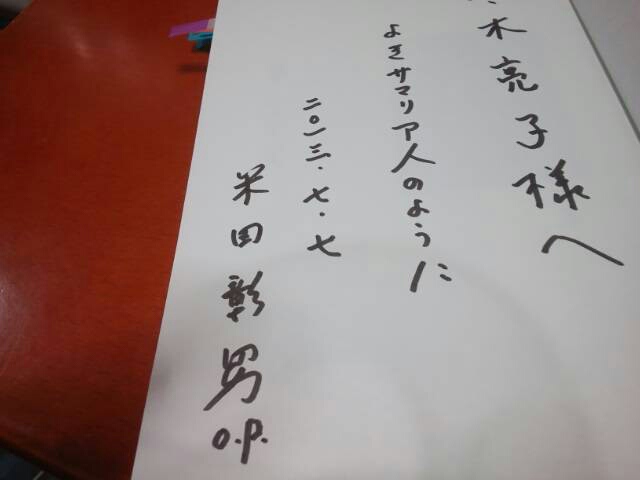 木亮子様へ
よきサマリア人のように
二〇一三・七・七
米田彰男
O.P.